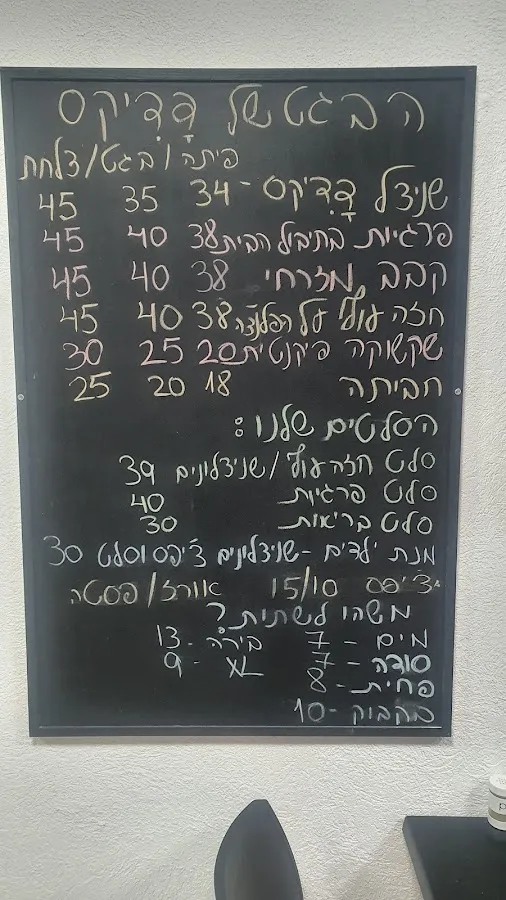 הבגט של דָּדִיקס
פיתה/בגט/צלחת
שניצל דָּדִיקס - 34 35 45
פרגיות בתיבול הבית 38 40 45
קבב מזרחי 38 40 45
חזה עוף על הפלנצ'ה 38 40 45
שקשוקה פיקנטית 20 25 30
חביתה 18 20 25
הסלטים שלנו:
סלט חזה עוף/שניצלונים 39
סלט פרגיות 40
סלט בריאות 30
מנת ילדים - שניצלונים צ'יפס וסלט 30
*צ'יפס 15/10 אורז/פסטה
משהו לשתות?
מים - 7 בירה - 13
סודה - 7 XL - 9
פחית - 8
בקבוק - 10